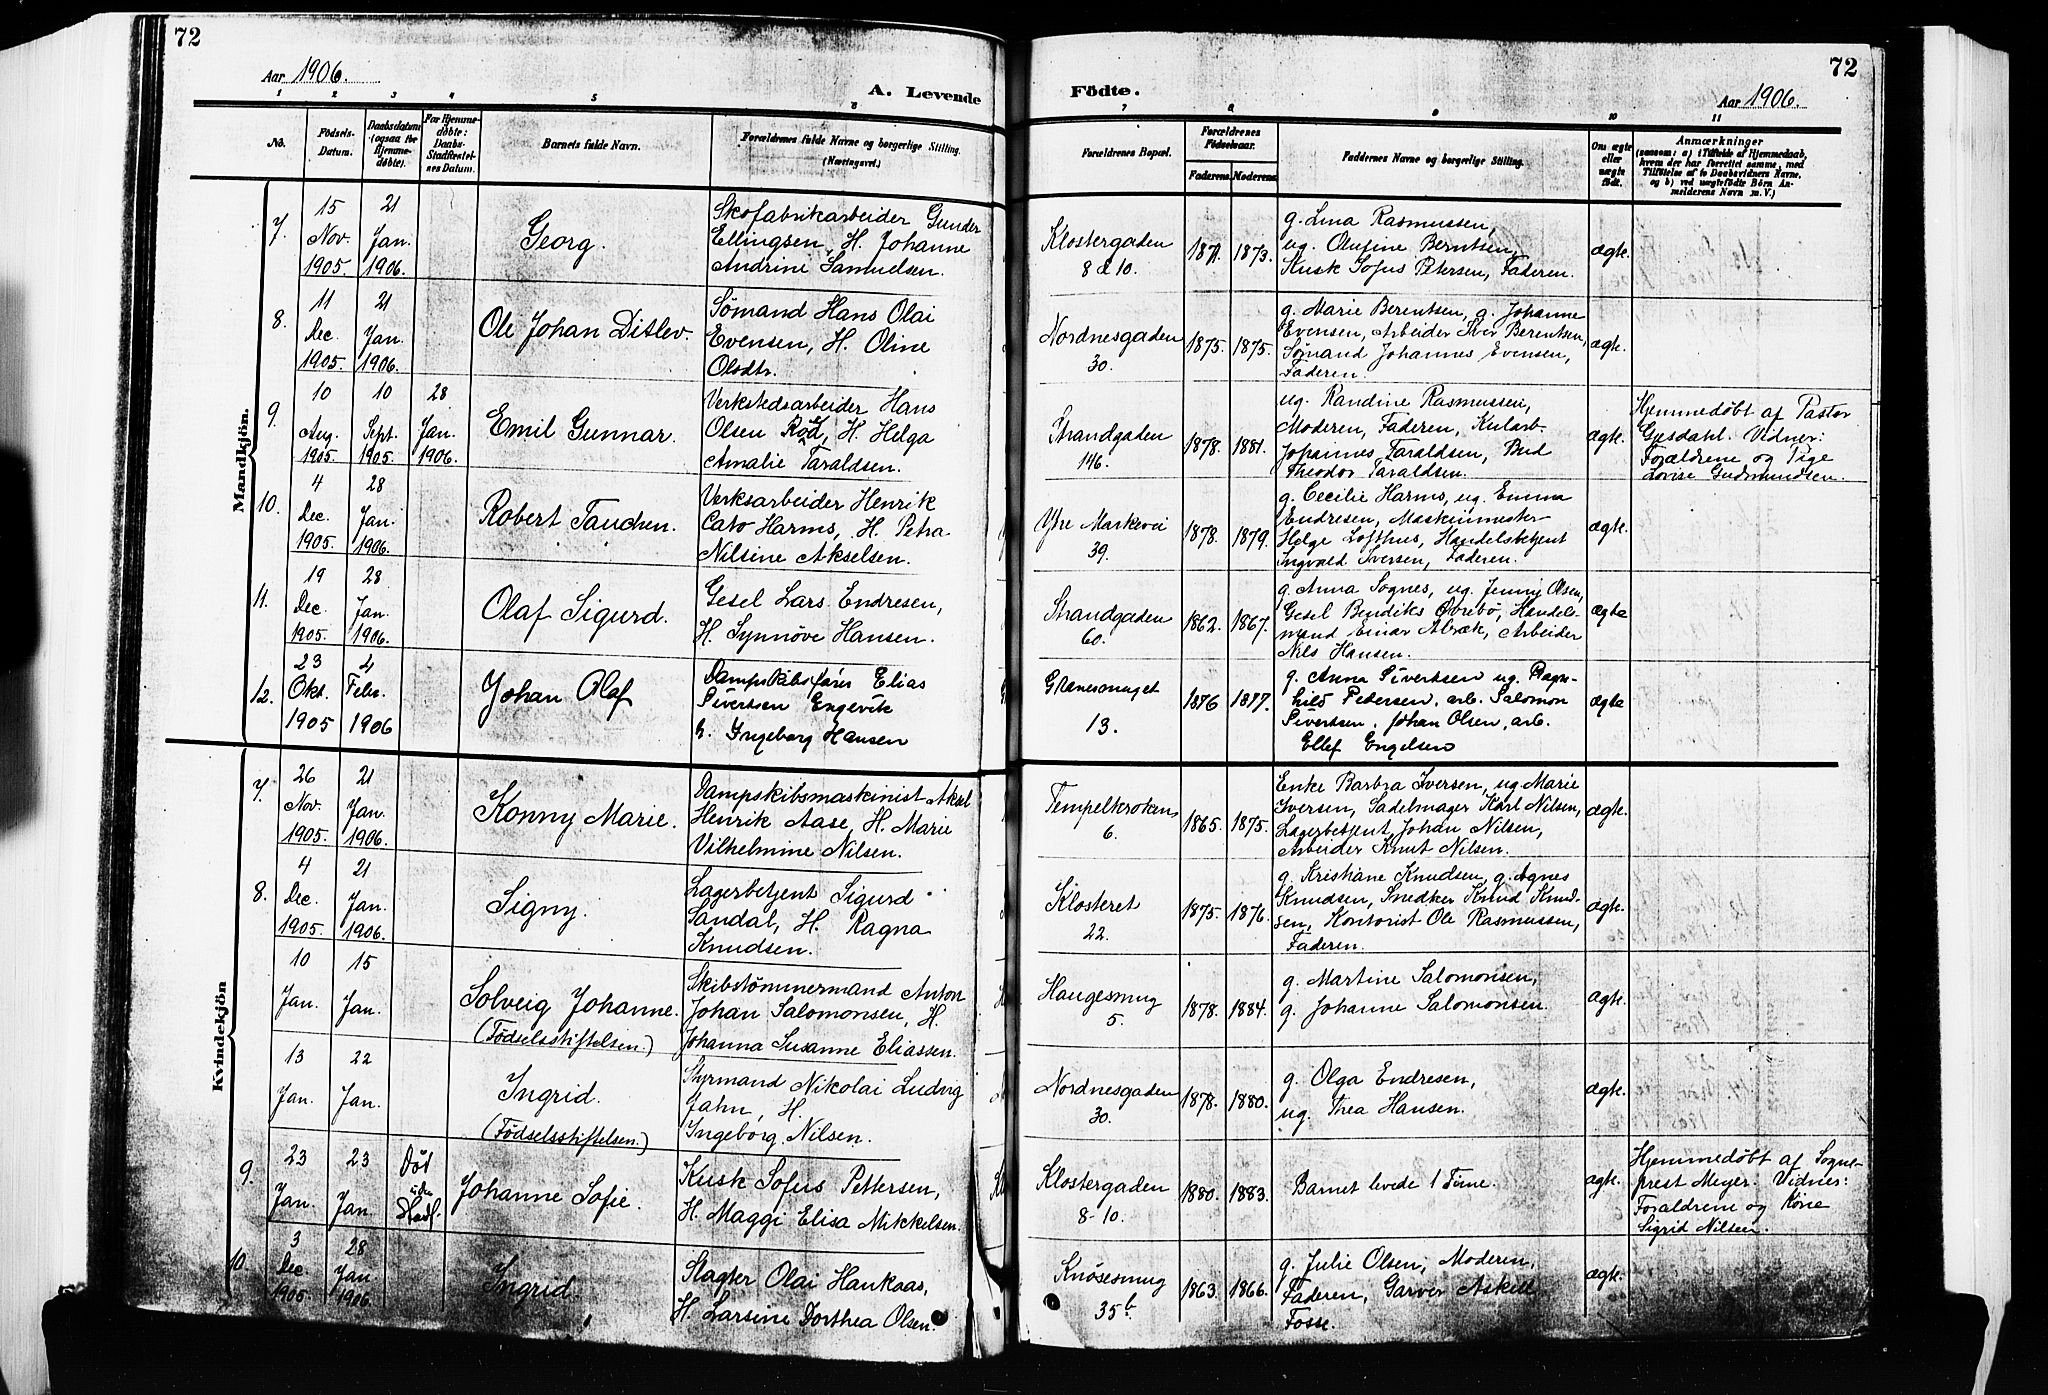 72
Aar 1906.
A. Levende
1 2 3 4 5 6
No.
Födsels-
Datum.
Daabsdatum
(ogsaa for
Hjemme-
döbte).
For Hjemme-
döbte:
Daabs-
Stadfæstel-
ses Datum.
Barnets fulde Navn.
Forældrenes fulde Navne og borgerlige Stilling.
(Næringsvei.)
Mandkjön.
7.
15
Nov.
1905.
21
Jan.
1906.
Georg.
Skofabrikarbeider Gunder
Ellingsen, H. Johanne
Andrine Samuelsen.
8.
11
Dec.
1905.
21
Jan.
1906.
Ole Johan Ditlev.
Sömand Hans Olai
Evensen, H. Oline
Olsdtr.
9.
10
Aug.
1905.
10
Sept.
1905.
28
Jan.
1906.
Emil Gunnar.
Verkstedsarbeider Hans
Olsen Röd, H. Helga
Amalie Taraldsen.
10.
4
Dec.
1905.
28
Jan.
1906.
Robert Tauchen.
Verksarbeider Henrik
Cato Harms, H. Petra
Nilsine Akselsen.
11.
19
Dec.
1905.
28
Jan.
1906.
Olaf Sigurd.
Gesel Lars Endresen,
H. Synnöve Hansen.
12.
23
Okt.
1905
4
Febr.
1906
Johan Olaf
Dampskibsförer Elias
Sivertsen Engevik
h. Ingeborg Hansen
Kvindekjön
7.
26
Nov.
1905.
21
Jan.
1906.
Konny Marie.
Dampskibsmaskinist Aksel
Henrik Aase, H. Marie
Vilhelmine Nilsen.
8.
4
Dec.
1905.
21
Jan.
1906.
Signy.
Lagerbetjent Sigurd
Sandal, H. Ragna
Knudsen.
10
Jan.
15
Jan.
Solveig Johanne.
(Födselsstiftelsen.)
Skibstömmermand Anton
Johan Salomonsen, H.
Johanna Susanne Eliassen.
13
Jan.
22
Jan.
Ingrid.
(Födselsstiftelsen.)
Styrmand Nikolai Ludvig
Jahn, H.
Ingeborg Nilsen.
9.
23
Jan.
23
Jan
Död
uden
Stadf.
Johanne Sofie.
Kusk Sofus Pettersen,
H. Maggi Elisa Mikkelsen.
10
3
Dec.
1905.
28
Jan
1906.
Ingrid.
Slagter Olai Haukaas,
H. Larsine Dorthea Olsen.
72
Födte.
Aar 1906.
7 8 9 10 11
Forældrenes Bopæl.
Forældrenes
Födselsaar.
Faderens.
Moderens.
Faddernes Navne og borgerlige Stilling.
Om ægte
eller
uægte
födt.
Anmærkninger
(saasom: a) i Tilfælde af Hjemmedaab,
hvem der har forrettet samme, med
Tilföielse af to Daabsvidners Navne,
og b) ved uægtefödte Börn An-
melderens Navn m. V.)
Klostergaden
8 & 10.
1871.
1873.
g. Lina Rasmussen,
ug. Olufine Berntsen,
Kusk Sofus Petersen, Faderen.
ægte.
Nordnesgaden
30.
1875.
1875.
g. Marie Berentsen, g. Johanne
Evensen, Arbeider Iver Berentsen,
Sømand Johannes Evensen,
Faderen.
ægte.
Strandgaden
146.
1878.
1881.
ug. Randine Rasmussen,
Moderen, Faderen, Kularb.
Johannes Taraldsen, Bud
Theodor Taraldsen.
ægte.
Hjemmedøbt af Pastor
Gjesdahl. Vidner:
Forældrene og Pige
Lovise Gudmundsen.
Ytre Markevei
39.
1878.
1879.
g. Cecilie Harms, ug. Emma
Endresen, Maskinmester
Helge Lofthus, Handelsbetjent
Ingvald Iversen, Faderen.
ægte.
Strandgaden
60.
1862.
1867.
g. Anna Sognes, ug. Jenny Olsen,
Gesel Bendiks Øvrebö, Handels-
mand Einar Alræk, Arbeider
Nils Hansen.
ægte
Grønesmuget
13.
1876
1877.
g. Anna Sivertsen ug. Ragn-
hild Pedersen. arb. Salomon
Sivertsen. Johan Olsen, arb.
Ellef Engelsen
ægte
Tempelkroken
6.
1865.
1875.
Enke Barbra Iversen, ug Marie
Iversen, Sadelmager Karl Nilsen,
Lagerbetjent Johan Nilsen,
Arbeider Knut Nilsen.
ægte.
Klosteret
22.
1875.
1876.
g. Kristiane Knudsen, g. Agnes
Knudsen, Snedker Knud Knud-
sen, Kontorist Ole Rasmussen,
Faderen.
ægte.
Haugesmug
5.
1878.
1884.
g. Martine Salomonsen,
g. Johanne Salomonsen.
ægte.
Nordnesgaden
30.
1878.
1880.
g. Olga Endresen,
ug. Thea Hansen.
ægte.
Klostergaden
8-10.
1880.
1883.
Barnet levede 1 Time.
ægte.
Hjemmedøbt af Sogne-
prest Meyer. Vidnes:
Forældrene og Kone
Sigrid Nilsen.
Knösesmug
35 b.
1863.
1866.
g. Julie Olsen, Moderen,
Faderen, Garver Askild
Fosse.
ægte.